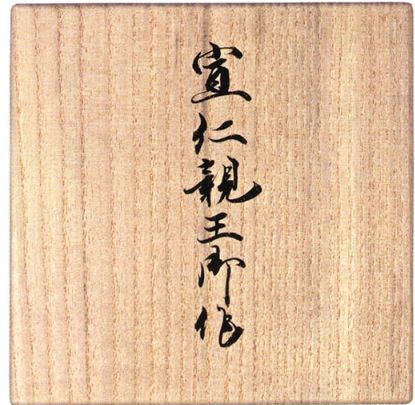 宣仁親王御作